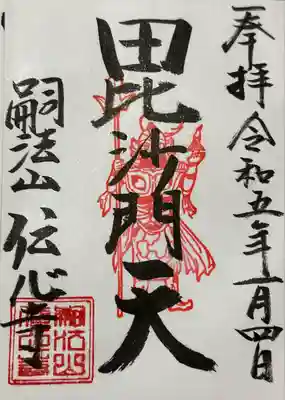 奉拝 令和五年一月四日
毘沙門天
嗣法山 伝心寺